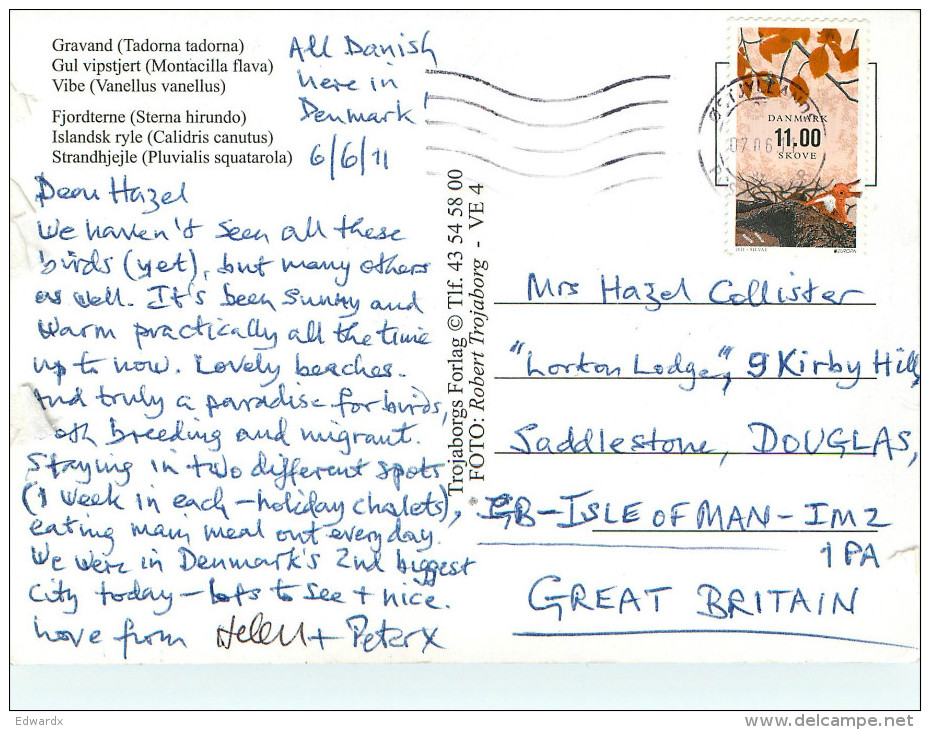 Gravand (Tadorna tadorna)
Gul vipstjert (Montacilla flava)
Vibe (Vanellus vanellus)
Fjordterne (Sterna hirundo)
Islandsk ryle (Calidris canutus)
Strandhjejle (Pluvialis squatarola)
All Danish
here in
Denmark!
6/6/11
Dear Hazel
We haven't seen all these
birds (yet), but many others
as well. It's been sunny and
warm practically all the time
up to now. Lovely beaches.
And truly a paradise for birds,
both breeding and migrant.
Staying in two different spots
(1 week in each - holiday chalets),
eating main meal out every day.
We were in Denmark's 2nd biggest
city today - lots to see + nice.
Love from Helen + Peter x
Trojaborgs Forlag © Tlf. 43 54 58 00
FOTO: Robert Trojaborg - VE 4
DANMARK
11.00
SKOVE
Mrs Hazel Collister
"Lorton Lodge", 9 Kirby Hill,
Saddlestone, DOUGLAS,
GB-ISLE OF MAN - IM2
1PA
GREAT BRITAIN
Edwardx
www.delcampe.net